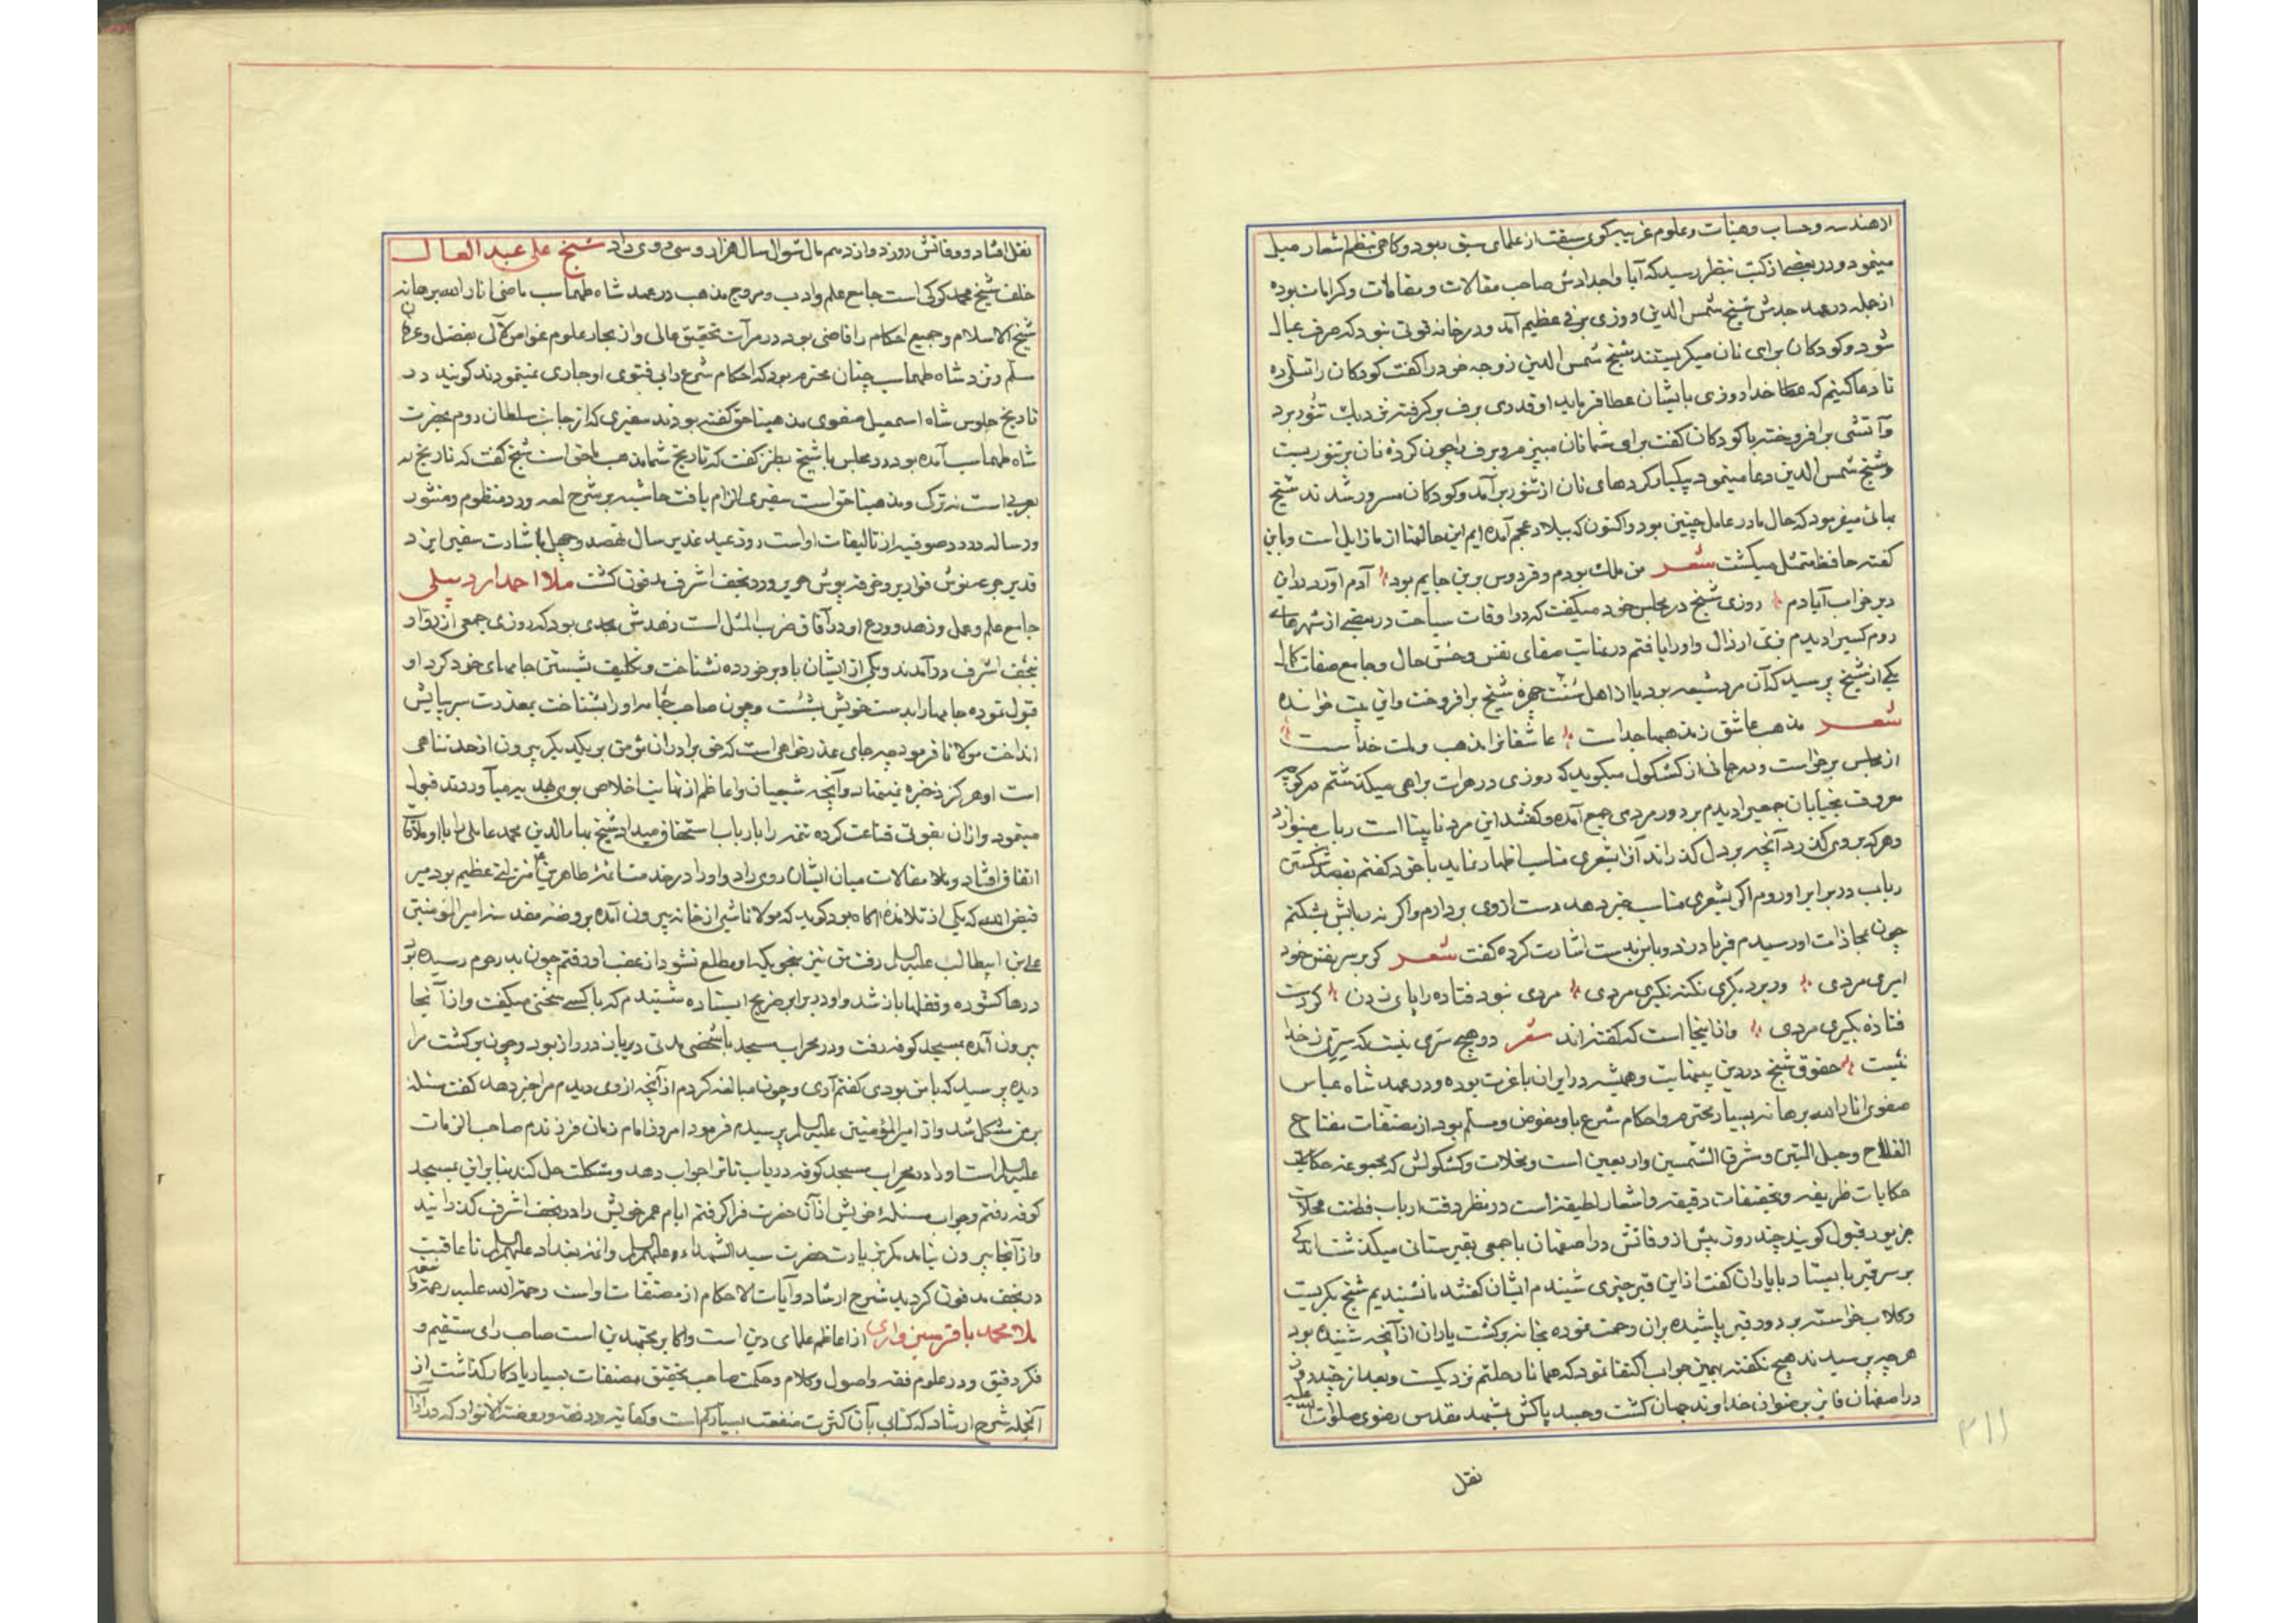 از هندسه و حساب و هیئات و علوم غریبه کوی سبقت از علمای سبق ربود و کاهی بنظم اشعار میل
مینمود و در بعضی از کتب بنظر رسید که آبا و اجدادش صاحب مقالات و مقامات و کرامات بوده
از جمله در عهد جدش شیخ شمس الدین روزی برفی عظیم آمد و در خانه قوتی نبود که صرف عیال
شود و کودکان برای نان میکریستند شیخ شمس الدین زوجه خود را کفت کودکان را تسلی ده
تا دعا کنیم که عطا خدا روزی بایشان عطا فرماید او قدری برف برکرفته نزدیک تنور برد
و آتشی برافروخته با کودکان کفت برای شما نان میپزم و برف را چون کرده نان بر تنور بست
و شیخ شمس الدین دعا مینمود یکبار کردهای نان از تنور برآمد و کودکان مسرور شدند شیخ
بهائی میفرمود که حال ما در عامل چنین بود و اکنون که ببلاد عجم آمده ایم این حالتها از ما زایل است و باین
کفته حافظ متمثل میکشت شعر من ملک بودم و فردوس برین جایم بود آدم آورد در این
دیر خراب آبادم روزی شیخ در مجلس خود میکفت که در اوقات سیاحت در بعضی از شهرهای
روم کسیرا دیدم بزی ارذال و او را یافتم در غایت صفای نفس و حسن حال و جامع صفات کمال
یکی از شیخ پرسید که آن مرد شیعه بود یا از اهل سنت چهره شیخ برافروخت و این بیت خوانده
شعر مذهب عاشق ز مذهبها جداست عاشقانرا مذهب و ملت خداست
از مجلس برخواست و در جائی از کشکول میکوید که روزی در هرات براهی میکذشتم در کوچه
معروف بخیابان جمعیرا دیدم بر دور مردی جمع آمده و کفتند این مرد نابینا است رباب مینوازد
و هر که بر وی کذرد آنچه بر دل کذراند آنرا بشعری مناسب اظهار نماید با خود کفتم بقصد شکستن
رباب در برابر او روم اکر بشعری مناسب خبر دهد دست از وی بردارم و اکر نه ربابش بشکنم
چون بمحاذات او رسیدم فریاد زد و باین بیت اشارت کرده کفت شعر کر بر سر نفس خود
امیری مردی ور بر دیکری نکته نکیری مردی مردی نبود فتاده را پای زدن کر دست
فتاده بکیری مردی و از اینجا است که کفته اند شعر در هیچ سری نیست که سری ز خدا
نیست حقوق شیخ در دین بینهایت و همیشه در ایران با عزت بوده و در عهد شاه عباس
صفوی انار الله برهانه بسیار محترم و احکام شرع باو مفوض و مسلم بود از مصنفات مفتاح
الفلاح و حبل المتین و مشرق الشمسین و اربعین است و مخلات و کشکولش که مجموعه
حکایات ظریفه و تحقیقات دقیقه و اشعار لطیفه است در نظر دقت ارباب فطنت محلات
بزیور قبول کویند چند روز پیش از وفاتش در اصفهان با جمعی بقبرستانی میکذشت
بر سر قبر بایستاد با یاران کفت از این قبر چیزی شنیدم ایشان کفتند ما نشنیدیم شیخ بکریست
و کلاب خواسته بر دور قبر پاشیده بر آن رحمت نموده بخانه برکشت یاران از آنچه شنیده بود
هر چه پرسیدند هیچ نکفته بهمین جواب اکتفا نمود که همانا رحلتم نزدیکست و بعد از چند روز
در اصفهان فایز برضوان خداوند جهان کشت و جسد پاکش بمشهد مقدس رضوی صلوات الله علیه
نقل
۲۱۱
نقل افتاد و وفاتش روز دوازدهم ماه شوال سال هزار و سی روی داد شیخ علی عبد العال
خلف شیخ محمد کرکی است جامع علم و ادب و مروج مذهب در عهد شاه طهماسب ماضی انار الله برهانه
شیخ الاسلام و جمیع احکام را قاضی بوده در مرآت تحقیق عالی و از بحار علوم غواص لآلی بفضل و عرفان
مسلم و نزد شاه طهماسب چنان محترم بود که احکام شرع را بی فتوی او جاری نمینمودند کویند در
تاریخ جلوس شاه اسمعیل صفوی مذهبنا حق کفته بودند سفیری که از جانب سلطان روم بحضرت
شاه طهماسب آمده بود در مجلس با شیخ بطنز کفت که تاریخ شما مذهب ناحق است شیخ کفت که تاریخ ما
بعربی است نه ترک و مذهبنا حق است سفیر الزام یافت حاشیه بر شرح لمعه و رد منظوم و منثور
و رساله در رد صوفیه از تالیفات او است روز عید غدیر سال نهصد و چهل باشارت سفیر ایزد
قدیر جرعه نوش قواریر و خرقه پوش حریر و در نجف اشرف مدفون کشت ملا احمد اردبیلی
جامع علم و عمل و زهد و ورع او در آفاق ضرب المثل است زهدش بحدی بود که روزی جمعی از زوار
بنجف اشرف درآمدند و یکی از ایشان باو برخورده نشناخت و تکلیف شستن جامهای خود کرد او
قبول نموده جامها را بدست خویش بشست و چون صاحب جامه او را بشناخت بمعذرت سر بپایش
انداخت مولانا فرمود چه جای عذرخواهی است که حق برادران مؤمن بر یکدیکر بیرون از حد تناهی
است او هرکز ذخیره نمینهاد و آنچه شیعیان و اعاظم از نهایت اخلاص بوی هدیه میآوردند قبول
مینمود و از آن بقوتی قناعت کرده تتمه را بارباب استحقاق میداد شیخ بهاء الدین محمد عاملی را با او ملاقات
اتفاق افتاد و مقالات میان ایشان روی داد و او را در خدمت ائمه طاهرین منزلتی عظیم بود میر
فیض الله که یکی از تلامذه آکاه بود کوید که مولانا شبی از خانه بیرون آمده بروضه مقدسه امیر المؤمنین
علی بن ابیطالب علیه السلام رفت من نیز بنحوی که او مطلع نشود از عقب او رفتم چون بدر حرم رسیده
درها کشوده و قفلها باز شد و او در برابر ضریح ایستاده شنیدم که با کسی سخنی میکفت و از آنجا
بیرون آمده بمسجد کوفه رفت و در محراب مسجد با شخصی مدتی در راز بود و چون برکشت مرا
دیده پرسید که با من بودی کفتم آری و چون مبالغه کردم از آنچه از وی دیدم مرا خبر دهد کفت مسئله
بر من مشکل شد و از امیر المؤمنین علیه السلام پرسیدم فرمود امروز امام زمان فرزندم صاحب الزمان
علیه السلام است او را در محراب مسجد کوفه دریاب تا ترا جواب دهد و مشکلت حل کند بنابراین بمسجد
کوفه رفتم و جواب مسئله خویش از آن حضرت فرا کرفتم ایام عمر خویش را در نجف اشرف کذرانید
و از آنجا بیرون نیامد مکر بزیارت حضرت سید الشهداء علیه السلام و ائمه بغداد علیهم السلام تا عاقبت
در نجف مدفون کردید شرح ارشاد و آیات الاحکام از مصنفات او است رحمة الله علیه
ملا محمد باقر سبزواری از اعاظم علمای دین است و اکابر مجتهدین است صاحب رای مستقیم و
فکر دقیق و در علوم فقه و اصول و کلام و حکمت صاحب تحقیق مصنفات بسیار یادکار کذاشت از
آنجمله شرح ارشاد که کتابی بآن کثرت منفعت بسیار کم است و کفایه در فقه و روضة الانوار که در آداب